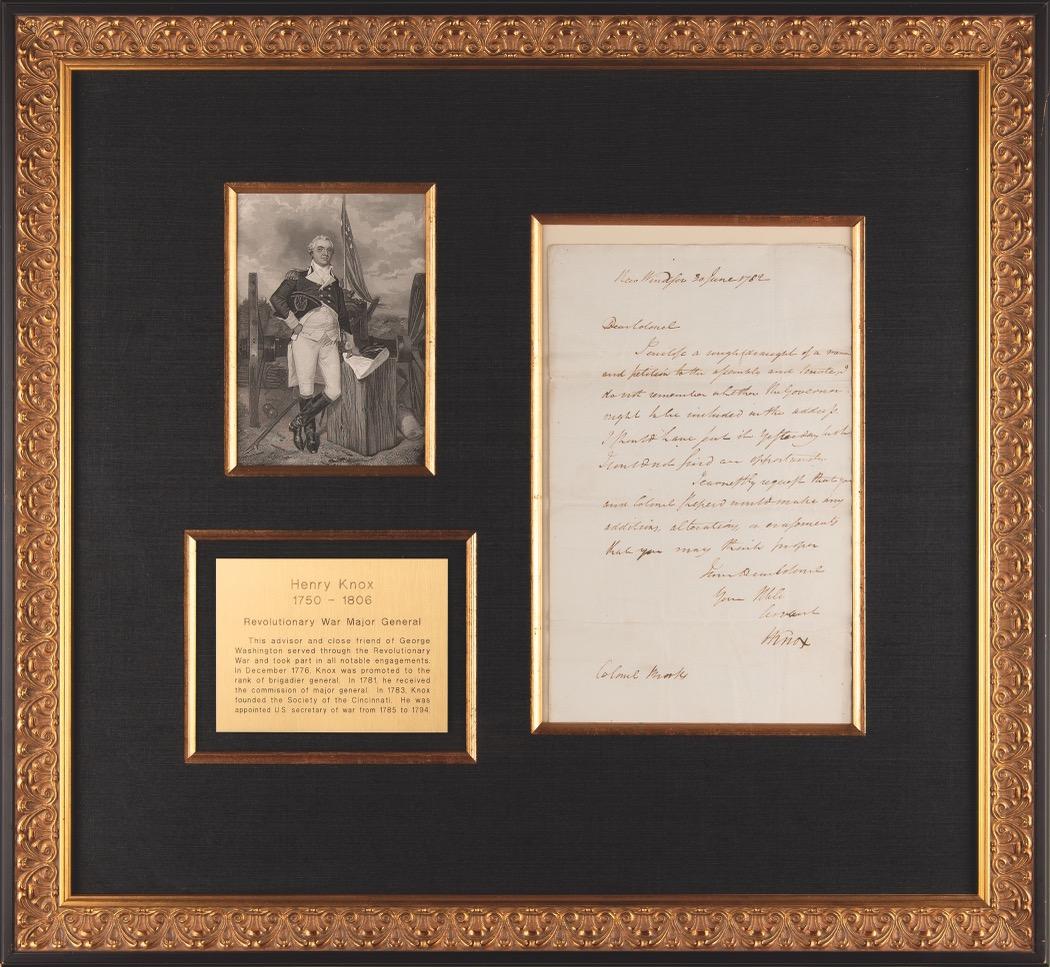 Henry Knox
1750 - 1806
Revolutionary War Major General
This advisor and close friend of George
Washington served through the Revolutionary
War and took part in all notable engagements.
In December 1776, Knox was promoted to the
rank of brigadier general. In 1781, he received
the commission of major general. In 1783, Knox
founded the Society of the Cincinnati. He was
appointed U.S. secretary of war from 1785 to 1794.
New Windsor 30 June 1782
Dear Colonel
I enclose a rough draught of a
and petition to the assembly and Senate, I
do not remember whether the Governor
ought to be included in the address
I should have sent it yesterday but
I could not find an opportunity
I earnestly request that you
and Colonel would make any
additions, alterations, or erasements
that you may think proper
I am Dear Colonel
Your Hble
Servant
HKnox
Colonel